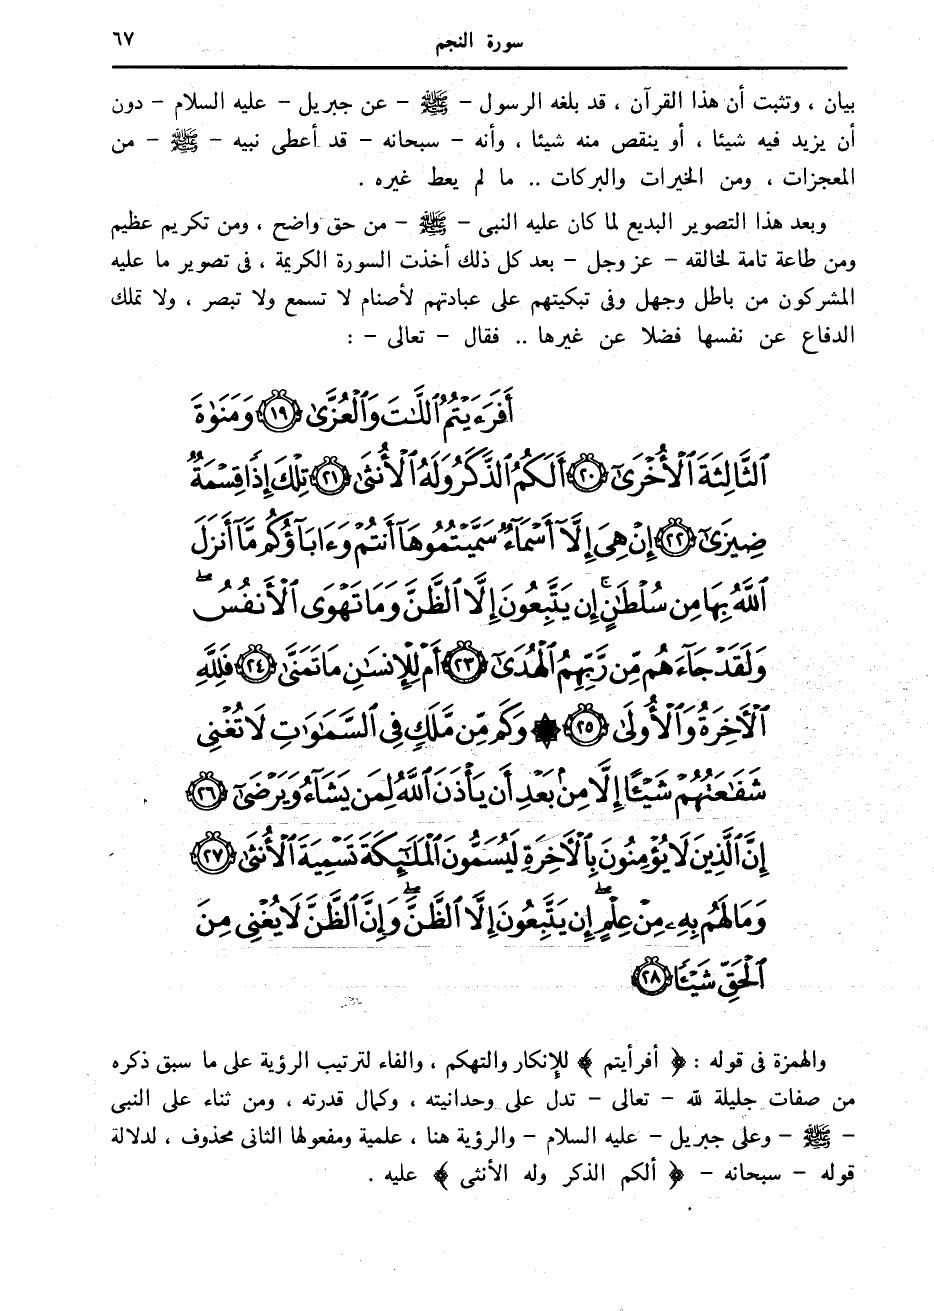 سورة النجم ٦٧
بيان ، وتثبت أن هذا القرآن ، قد بلغه الرسول – ﷺ – عن جبريل – عليه السلام – دون
أن يزيد فيه شيئا ، أو ينقص منه شيئا ، وأنه – سبحانه – قد أعطى نبيه – ﷺ – من
المعجزات ، ومن الخيرات والبركات .. ما لم يعط غيره .
وبعد هذا التصوير البديع لما كان عليه النبى – ﷺ – من حق واضح ، ومن تكريم عظيم
ومن طاعة تامة لخالقه – عز وجل – بعد كل ذلك أخذت السورة الكريمة ، فى تصوير ما عليه
المشركون من باطل وجهل وفى تبكيتهم على عبادتهم لأصنام لا تسمع ولا تبصر ، ولا تملك
الدفاع عن نفسها فضلا عن غيرها .. فقال – تعالى – :
أَفَرَءَيْتُمُ ٱللَّٰتَ وَٱلْعُزَّىٰ ۝١٩ وَمَنَوٰةَ
ٱلثَّالِثَةَ ٱلْأُخْرَىٰٓ ۝٢٠ أَلَكُمُ ٱلذَّكَرُ وَلَهُ ٱلْأُنثَىٰ ۝٢١ تِلْكَ إِذًا قِسْمَةٌ
ضِيزَىٰٓ ۝٢٢ إِنْ هِىَ إِلَّآ أَسْمَآءٌ سَمَّيْتُمُوهَآ أَنتُمْ وَءَابَآؤُكُم مَّآ أَنزَلَ
ٱللَّهُ بِهَا مِن سُلْطَٰنٍ ۚ إِن يَتَّبِعُونَ إِلَّا ٱلظَّنَّ وَمَا تَهْوَى ٱلْأَنفُسُ ۖ
وَلَقَدْ جَآءَهُم مِّن رَّبِّهِمُ ٱلْهُدَىٰٓ ۝٢٣ أَمْ لِلْإِنسَٰنِ مَا تَمَنَّىٰ ۝٢٤ فَلِلَّهِ
ٱلْـَٔاخِرَةُ وَٱلْأُولَىٰ ۝٢٥ ۞ وَكَم مِّن مَّلَكٍ فِى ٱلسَّمَٰوَٰتِ لَا تُغْنِى
شَفَٰعَتُهُمْ شَيْـًٔا إِلَّا مِنۢ بَعْدِ أَن يَأْذَنَ ٱللَّهُ لِمَن يَشَآءُ وَيَرْضَىٰٓ ۝٢٦
إِنَّ ٱلَّذِينَ لَا يُؤْمِنُونَ بِٱلْـَٔاخِرَةِ لَيُسَمُّونَ ٱلْمَلَٰٓئِكَةَ تَسْمِيَةَ ٱلْأُنثَىٰ ۝٢٧
وَمَا لَهُم بِهِۦ مِنْ عِلْمٍ ۖ إِن يَتَّبِعُونَ إِلَّا ٱلظَّنَّ ۖ وَإِنَّ ٱلظَّنَّ لَا يُغْنِى مِنَ
ٱلْحَقِّ شَيْـًٔا ۝٢٨
والهمزة فى قوله : ﴿ أفرأيتم ﴾ للإنكار والتهكم ، والفاء لترتيب الرؤية على ما سبق ذكره
من صفات جليلة لله – تعالى – تدل على وحدانيته ، وكمال قدرته ، ومن ثناء على النبى
– ﷺ – وعلى جبريل – عليه السلام – والرؤية هنا ، علمية ومفعولها الثانى محذوف ، لدلالة
قوله – سبحانه – ﴿ ألكم الذكر وله الأنثى ﴾ عليه .